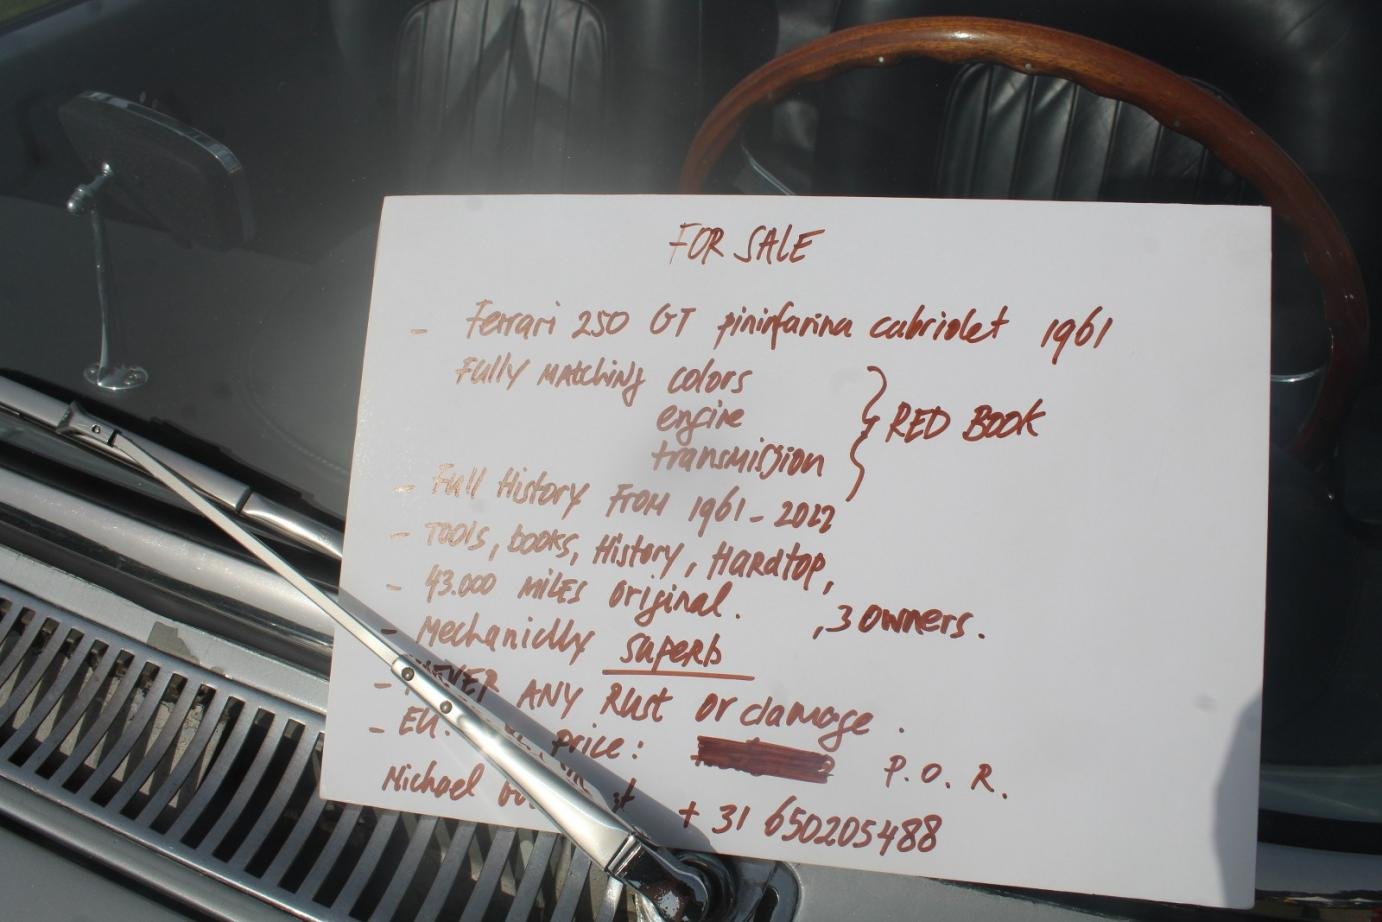 FOR SALE
- Ferrari 250 GT pininfarina cabriolet 1961
Fully MAtching colors
engine
transmission
RED BOOK
- Full History FROM 1961-2022
- TOOLS, books, History, HARdtop,
- 43.000 MILES Original. , 3 owners.
- Mechanically superb
- NEVER ANY RUST or damage.
- EU. price: P.O.R.
Michael + 31 650205488